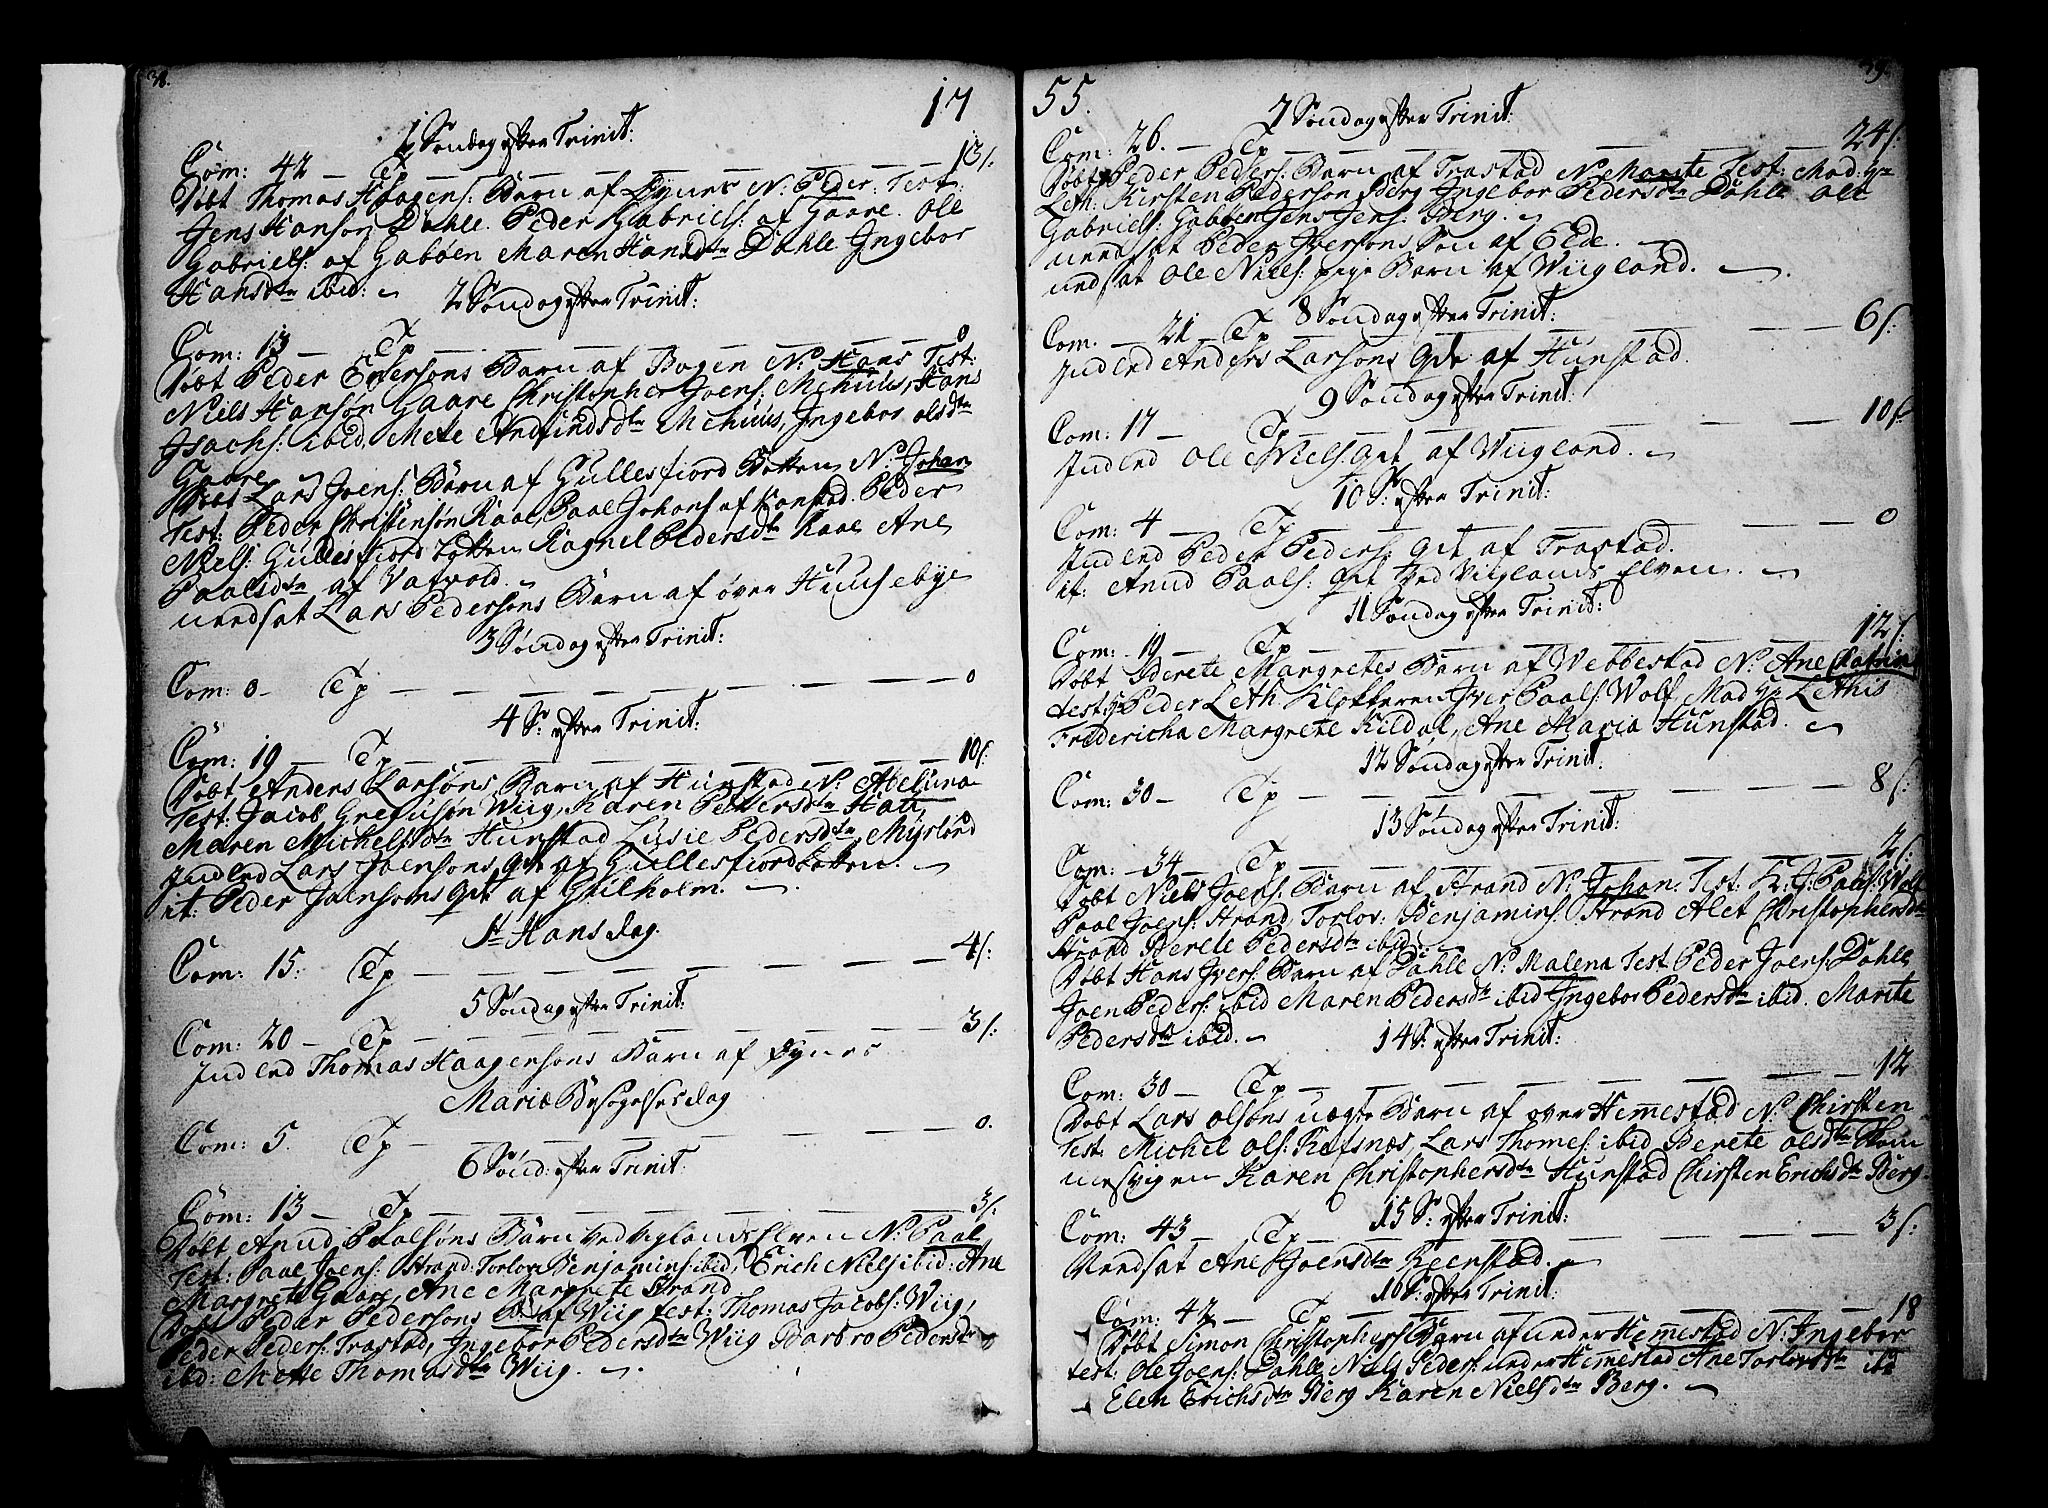 38.
17
1 Søndag efter Trinit:
Com: 42 — Tp — — — — — — 13/:
Døbt Thomas Haagens: Barn af Fynes N: Peder: Test:
Jens Hanson Dahle. Peder Gabriels: af Gaare. Ole
Gabriels: af Gabøen Maren Hansdtr Dahle Ingebor
Hansdtr ibid:
2 Søndag efter Trinit:
Com: 13 — Tp — — — — — — 0
Døbt Peder Enersons Barn af Bogen N: Hans Test:
Niels Hansøn Gaare Christopher Joens: Mehuus, Hans
Isachs: ibid Mete Andfindsdtr Mehuus, Ingebor olsdtr
Gaare
Døbt Lars Joens: Barn af Gullesfiord Botten N: Johan
Test: Peder Christensøn Kaae, Paal Johans af Konstad. Peder
Niels: Gullesfiordbotten Ragnel Pedersdtr Kaae Ane
Paalsdtr af Vatvold.
needsat Lars Pedersons Barn af øver Huusebye
3 Søndag efter Trinit:
Com: 0 — Tp — — — — — — 0
4 S: efter Trinit:
Com: 19 — Tp — — — — — — 10/:
Døbt Anders Larsøns Barn af Hunstad N: Abeluna
Test: Jacob Grefusøn Wiig, Karen Pedersdtr Hati,
Maren Michelsdtr Hunstad Lusie Pedersdtr Myrlond
Indled Lars Joensons qdr af Gullesfiordbotten.
it: Peder Joensons qdr af Guilholm.
St Hans dag.
Com: 15. Tp — — — — — — 4/:
5 Søndag efter Trinit:
Com: 20 — Tp — — — — — — 3/:
Indled Thomas Haagensons Barn af Fynes
Mariæ Besøgelses dag
Com: 5. Tp — — — — — — 0.
6 Sønd: efter Trinit:
Com: 13 — Tp — — — — — — 3/:
Døbt Anud Paalsøns Barn ved viglands Elven N: Paal
Test: Paal Joens: Strand: Torlov Benjamins: ibid, Erich Niels ibid: Ane
Margrete Gaare, Ane Margrete Strand
Døbt Peder Pedersons af Wiig test: Thomas Jacobs: Wiig,
Peder Peders: Trastad, Ingebor Pedersdtr Wiig Barbro Pedersdtr
ibd: Mette Thomasdtr Wiig.
39.
55.
7 Søndag efter Trinit:
Com: 26. — Tp — — — — — — 24/:
Døbt Peder Peders: Barn af Trastad N: Marite Test: Mad:
Leth: Kirsten Pederson Berg Ingebor Pedersdtr Dahle Ole
Gabriels: Gabøen Jens Jens: Berg.
needsat Peder Iversons Søn af Elde.
nedsat Ole Niels: pige Barn af Wiigland.
8 Søndag efter Trinit:
Com. — 21 — Tp — — — — — 6/:
Indled Anders Larsons qdr af Hunstad.
9 Søndag efter Trinit:
Com: 17 — Tp — — — — — — 10/:
Indled Ole Niels: qdr af Wiigland.
10 S: efter Trinit:
Com: 4 — Tp — — — — — — 0
Indled Peder Peders: qdr af Trastad.
it: Anud Paals: qdr ved Viiglands Elven.
11 Søndag efter Trinit:
Com: 19 — Tp — — — — — — 12/:
Døbt Berete Margretes Barn af Webbestad N: Ane Catrina
test: Peder Leth. Klokkeren Iver Paals: Wolf, Mad Lethis
Fredericha Margrete Kildal, Ane Maria Hunstad.
12 Søndag efter Trinit:
Com: 30 — Tp — — — — — — 8/:
13 Søndag efter Trinit:
Com: 34 — Tp — — — — — — 2/:
Døbt Niels Joens: Barn af Strand N: Johan. Test: K: J: Paals: Wolf
Paal Joens: Strand, Torlov: Benjamins: Strand Alet Christophersdtr
Strand Berete Pedersdtr ibid:
Døbt Hans Ivers: Barn af Dahle N: Malena Test Peder Joens: Dahle
Joen Peders: ibid Maren Pedersdtr ibid Ingebor Pedersdtr ibid. Marite
Pedersdtr ibid.
14 S: efter Trinit:
Com: 30 — Tp — — — — — — 12
Døbt Lars olsøns uægte Barn af over Hemmestad N: Chirsten
Test: Michel ols: Refsnæs, Lars Thomes: ibid Berete olsdtr Stem
nesvigen Karen Christophersdtr Hunstad Chirsten Erichsdtr Berg.
15 S: efter Trinit:
Com: 43 — Tp — — — — — — 3/:
Needsat Ane Joensdtr Reenstad.
16 S: efter Trinit:
Com: 42 — Tp — — — — — — 18
Døbt Simon Christophers Barn af under Hemmestad N: Ingebor
test: Ole Joens: Dahle Niels Peders: under Hemmestad Ane Torlovsdtr ibd
Elen Erichsdtr Berg Karen Nielsdtr Berg.